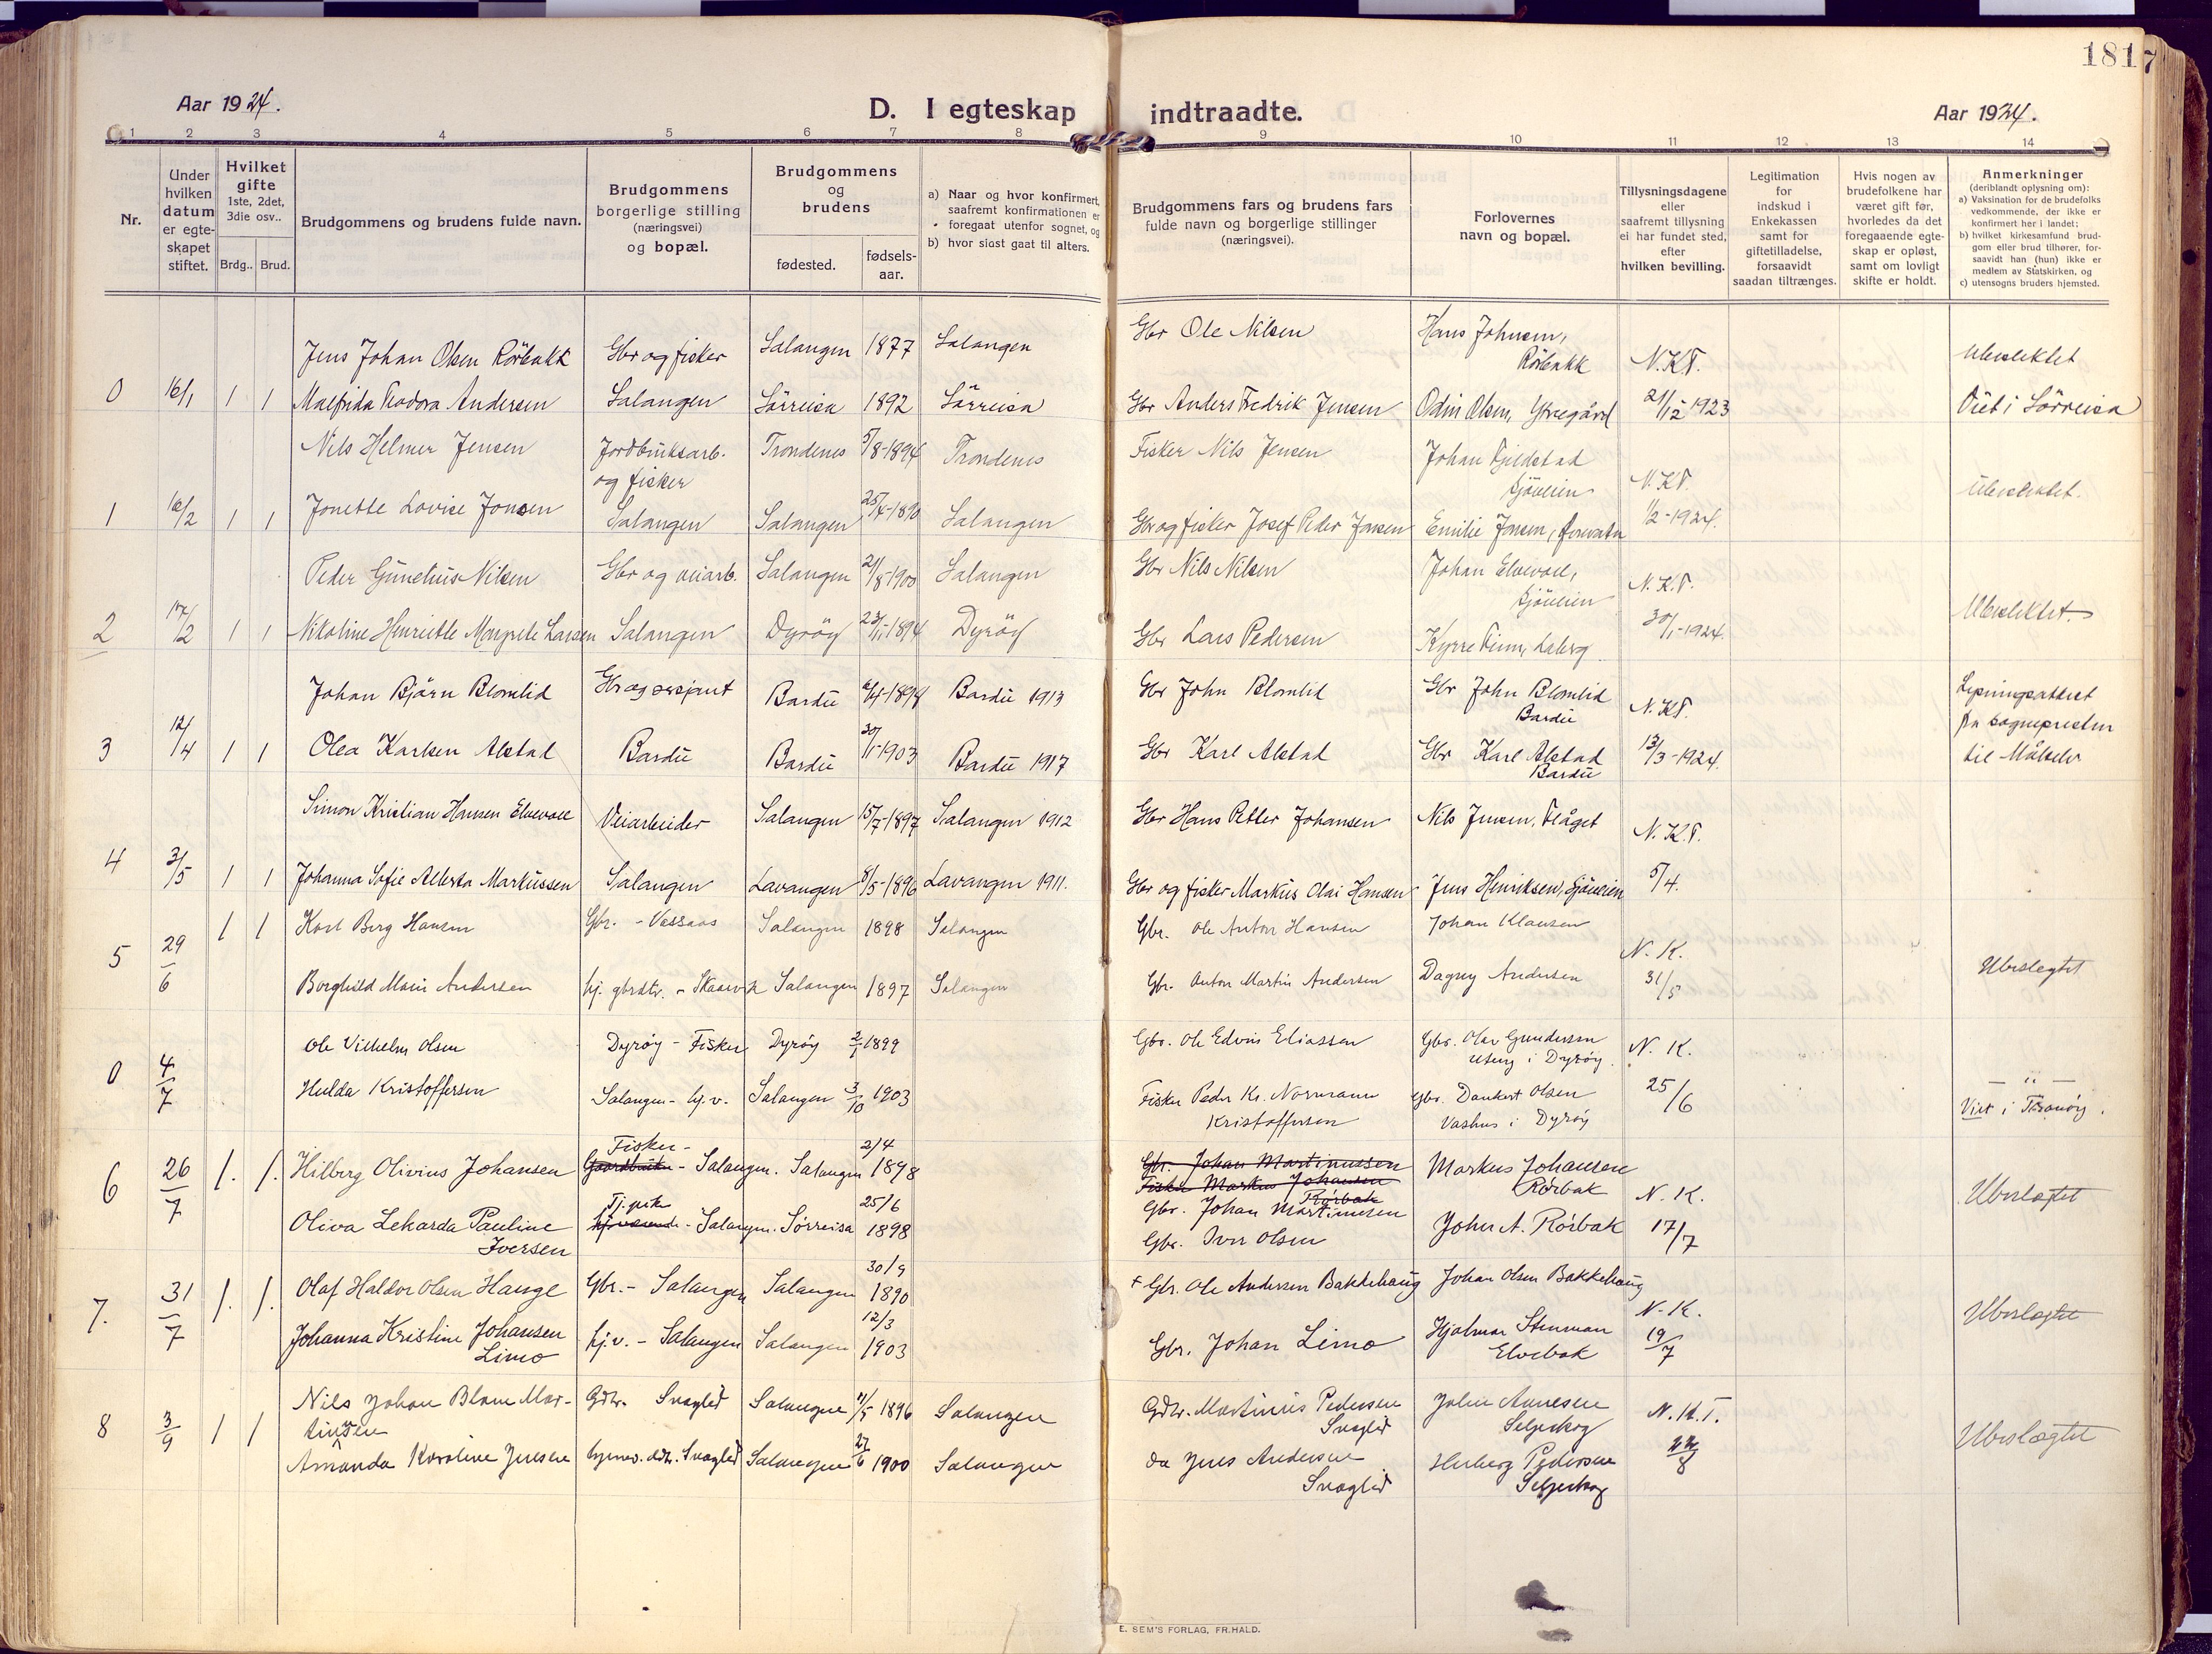 181 7
Aar 1924.
D. I egteskap
indtraadte.
Aar 1924.
1 2 3 4 5 6 7 8 9 10 11 12 13 14
Nr.
Under hvilken datum er egteskapet stiftet.
Hvilket gifte 1ste, 2det, 3die osv..
Brdg.. Brud.
Brudgommens og brudens fulde navn.
Brudgommens borgerlige stilling (næringsvei) og bopæl.
Brudgommens og brudens
fødested.
fødsels-aar.
a) Naar og hvor konfirmert, saafremt konfirmationen er foregaat utenfor sognet, og
b) hvor sidst gaat til alters.
Brudgommens fars og brudens fars fulde navn og borgerlige stillinger (næringsvei).
Forlovernes navn og bopæl.
Tillysningsdagene eller saafremt tillysning ei har fundet sted, efter hvilken bevilling.
Legitimation for indskud i Enkekassen samt for giftetilladelse, forsaavidt saadan tiltrænges.
Hvis nogen av brudefolkene har været gift før, hvorledes da det foregaaende egteskap er opløst, samt om lovligt skifte er holdt.
Anmerkninger
(deriblandt oplysning om):
a) Vaksination for de brudefolks vedkommende, der ikke er konfirmert her i landet:
b) hvilket kirkesamfund brudgom eller brud tilhører, forsaavidt han (hun) ikke er medlem av Statskirken, og
c) utensogns bruders hjemsted.
Jens Johan Olsen Rörbakk Gbr og fisker Salangen 1877 Salangen Gbr Ole Nilsen Hans Johnsen, Rörbakk N.K.T. Uberslektet
0 16/1 1 1 Malfrida Teodora Andersen Salangen Sörreisa 1892 Sörreisa Gbr Anders Fredrik Jensen Odin Olsen, Ytregård 21/12 1923 Viet i Sörreisa
Nils Helmer Jensen Jordbruksarb. og fisker Trondenes 5/8-1894 Trondenes Fisker Nils Jensen Johan Fjeldstad Sjöveien N.KT. Uberslektet.
1 16/2 1 1 Jonette Lovise Jonsen Salangen Salangen Salangen Gbr og fisker Josef Peder Jonsen Emilie Jonsen, 1/2-1924.
Peder Gunelius Nilsen Gbr og veiarb. Salangen 21/8-1900 Salangen Gbr Nils Nilsen Johan Elvevoll, Sjöveien N.K.T.
2 17/2 1 1 Nikoline Henriette Margrete Larsen Salangen Dyröy 23/11-1894 Dyröy Gbr Lars Pedersen Kyrre Finn, Laberg 30/1-1924. Uberslektet.
Johan Bjärn Blomlid Gbr og sersjant Bardu 6/4-1894 Bardu 1913 Gbr John Blomlid Gbr John Blomlid Bardu N.KT. Lysningsattest
fra sognepresten
3 12/4 1 1 Olea Karlsen Alstad Bardu Bardu 30/11-1903 Bardu 1917 Gbr Karl Alstad Gbr Karl Alstad Bardu 13/3-1924. til Målselv
Simon Kristian Hansen Elvevoll Veiarbeider Salangen 15/7-1897 Salangen 1912 Gbr Hans Petter Johansen Nils Jensen, Flåget N.K.T.
4 3/5 1 1 Johanna Sofie Alberta Markussen Salangen Lavangen 8/5-1896 Lavangen 1911. Gbr og fisker Markus Olai Hansen Jens Henriksen, Sjöveien 5/4.
1 1 Karl Berg Hansen Gbr. - Vassaas Salangen 1898 Salangen Gbr. Ole Anton Hansen Johan Klausen N. K.
5 29/6 Borghild Marie Andersen hj. gbrdtr. - Skaarvik Salangen 1897 Salangen Gbr. Anton Martin Andersen Dagny Andersen 31/5 Uberslegtet
Ole Vilhelm Olsen Dyröy - Fisker Dyröy 2/1 1899 Gbr. Ole Edvin Eliassen Gbr. Olav Gundersen i Dyröy. N. K.
0 4/7 Hulda Kristoffersen Salangen - hj.v. Salangen 3/10 1903 Fisker Peder Kr. Normann Kristoffersen Gbr. Dankert Olsen Vashus i Dyröy 25/6 — " —
Viet i Tranöy.
6 26/7 1. 1. Hilberg Olivius Johansen Fisker - Gaardbruker - Salangen. Salangen 2/4 1898 Gbr. Johan Martinussen Markus Johansen Rörbak N. K. Uberslægtet
Fisker Markus Johansen Rörbak
Gbr. Johan Martinussen
Oliva Lekarda Pauline Iversen Tj.pike hjemmev. - Salangen. Sørreisa 25/6 1898 Gbr. Iver Olsen Johan A. Rörbak 17/7
7. 31/7 1. 1. Olaf Haldor Olsen Hauge Gbr. - Salangen Salangen 30/9 1890 + Gbr. Ole Andersen Bakkehaug Johan Olsen Bakkehaug N. K. Uberslægtet
Johanna Kristine Johansen Limo hj.v. - Salangen Salangen 12/3 1903 Gbr. Johan Limo Hjalmar Stenman Elvebak 19/7
Nils Johan Blom Martinsen Gdbr. Svaglid Salangen 11/5 1896 Salangen Gdbr. Martinus Pedersen Svaglid Johan Seljeskog N.K.T.
8 3/9 1 1 Amanda Karoline Jensen hjemmev. dtr. Svaglid Salangen 27/6 1900 Salangen do Jens Andersen Svaglid Herberg Pedersen Seljeskog 22/8 Uberslægtet
E. SEM'S FORLAG, FR.HALD.